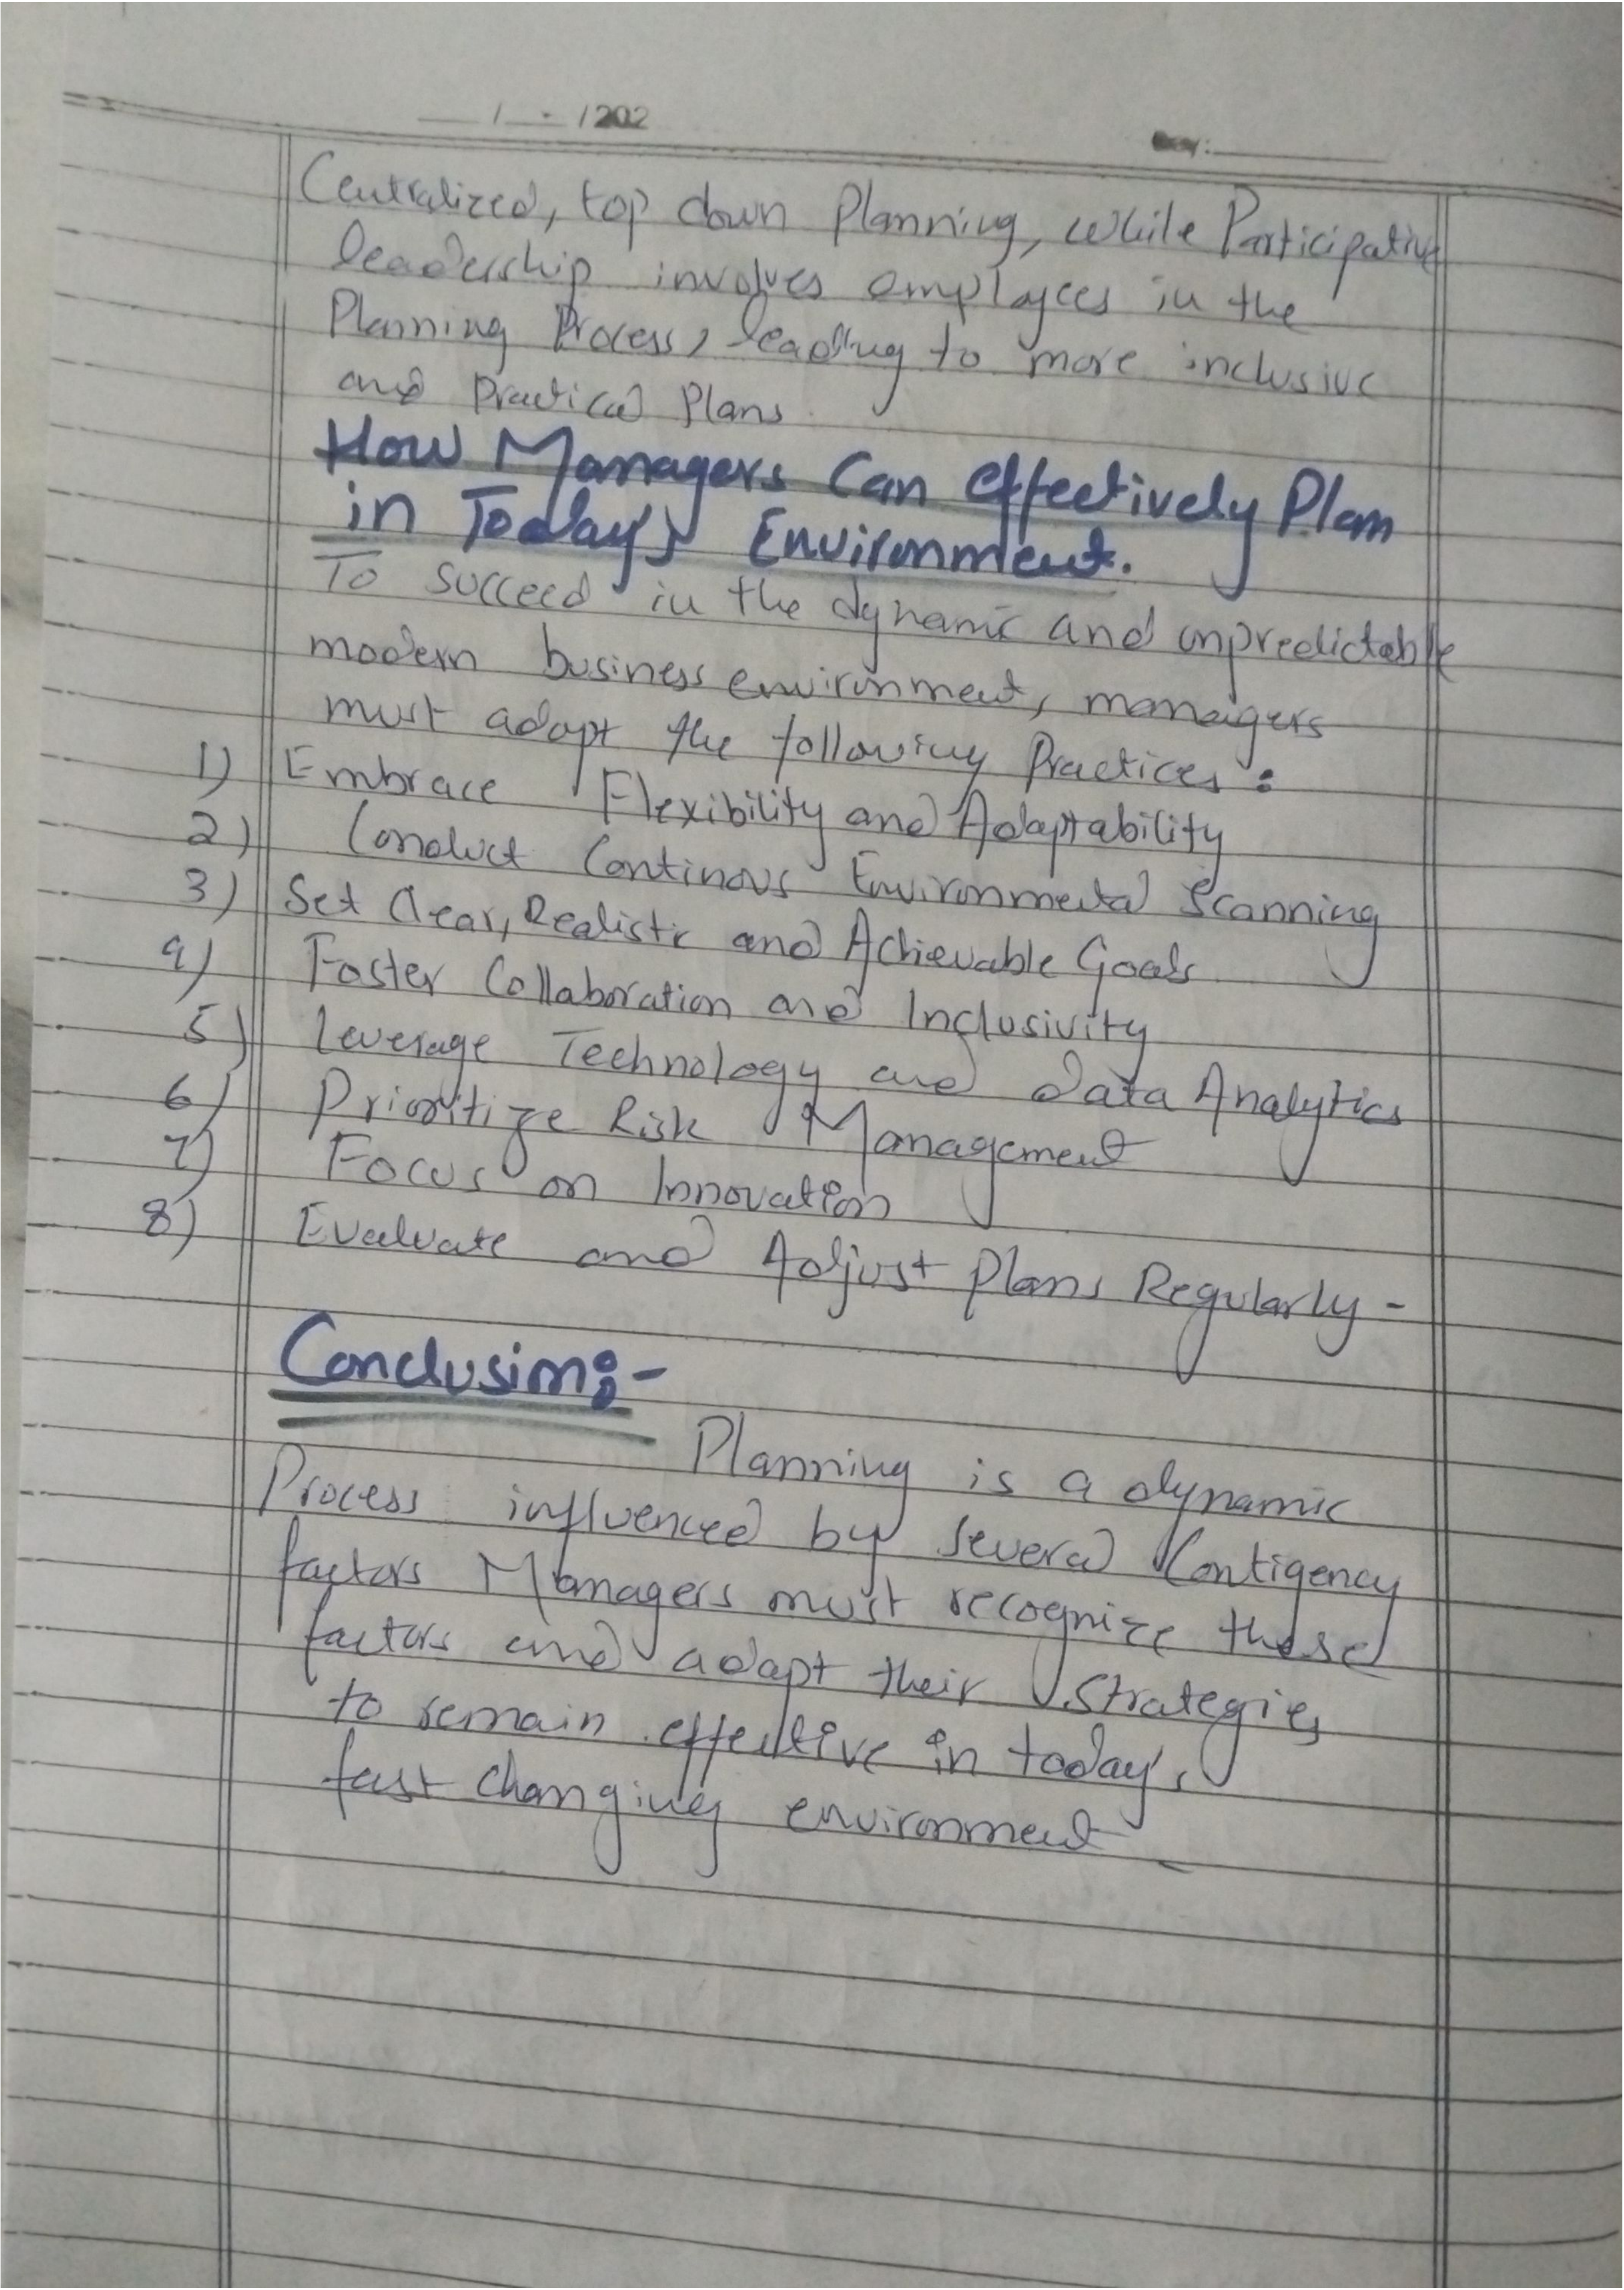 / /202
Day:
Centralized, top down Planning, while Participative
leadership involves employees in the
Planning Process, leading to more inclusive
and Practical Plans.
How Managers Can effectively Plan
in Today's Environment.
To succeed in the dynamic and unpredictable
modern business environment, managers
must adopt the following Practices:
1) Embrace Flexibility and Adaptability
2) Conduct Continous Environmental Scanning
3) Set Clear, Realistic and Achievable Goals
4) Foster Collaboration and Inclusivity
5) Leverage Technology and data Analytics
6) Prioritize Risk Management
7) Focus on Innovation
8) Evaluate and Adjust Plans Regularly -
Conclusion:-
Planning is a dynamic
Process influenced by several Contigency
factors Managers must recognize these
factors and adapt their Strategies
to remain effective in today's
fast changing environment